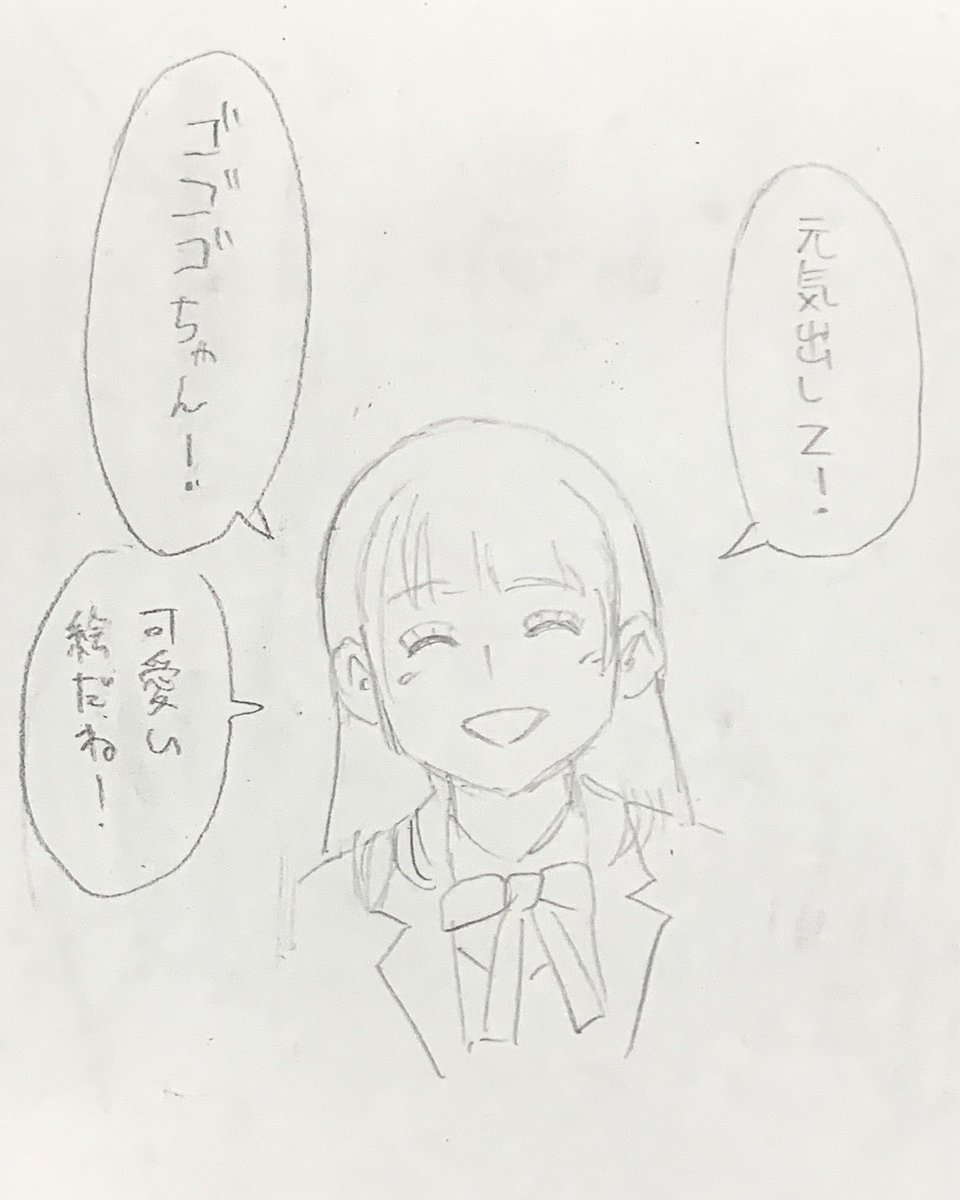 元気出して!
ゴゴゴちゃん!
可愛い
絵だね!